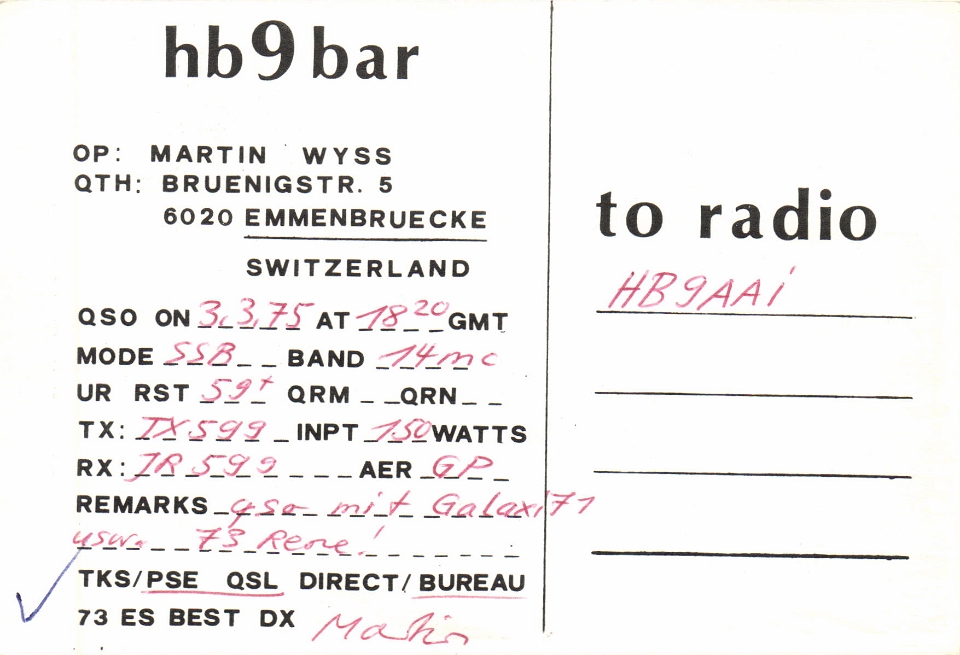 hb9bar
OP: MARTIN WYSS
QTH: BRUENIGSTR. 5
6020 EMMENBRUECKE
SWITZERLAND
QSO ON 3.3.75 AT 18 20 GMT
MODE SSB BAND 14mc
UR RST 59+ QRM QRN
TX: TX599 INPT 150 WATTS
RX: JR599 AER GP
REMARKS qso mit Galaxi 71
usw. 73 Rene!
TKS/PSE QSL DIRECT/BUREAU
73 ES BEST DX Martin
to radio
HB9AAi